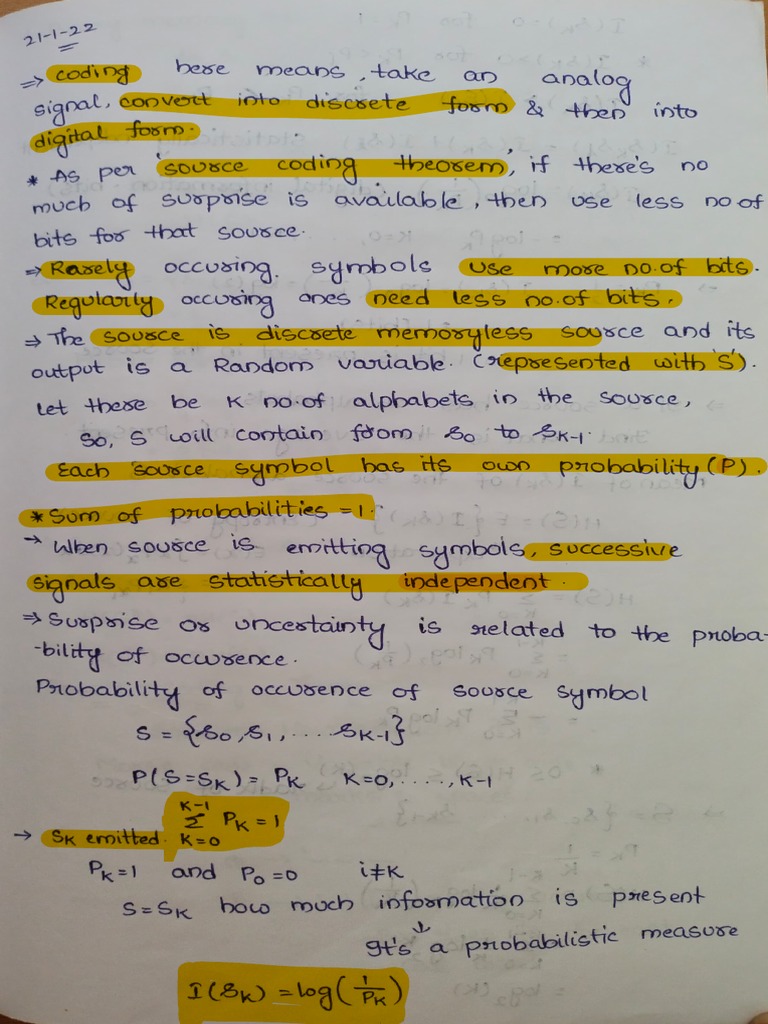 21-1-22
⇒ coding here means, take an analog
signal, convert into discrete form & then into
digital form.
* As per 'source coding theorem', if there's no
much of surprise is available, then use less no of
bits for that source.
⇒ Rarely occuring symbols use more no. of bits.
Regularly occuring ones need less no. of bits.
⇒ The source is discrete memoryless source and its
output is a Random variable. (represented with 'S').
Let there be K no. of alphabets in the source,
So, S will contain from s₀ to sK-1.
Each source symbol has its own probability (P).
* Sum of probabilities = 1.
→ When source is emitting symbols, successive
signals are statistically independent.
⇒ Surprise or uncertainty is related to the proba-
-bility of occurence.
Probability of occurence of source symbol
S = {s₀, s₁, .... sK-1}
P(S=sK) = PK K=0, ...., K-1
K-1
Σ PK = 1
→ SK emitted. K=0
PK=1 and P₀=0 i≠K
S=SK how much information is present
It's a probabilistic measure
I(sK) = log(1/PK)